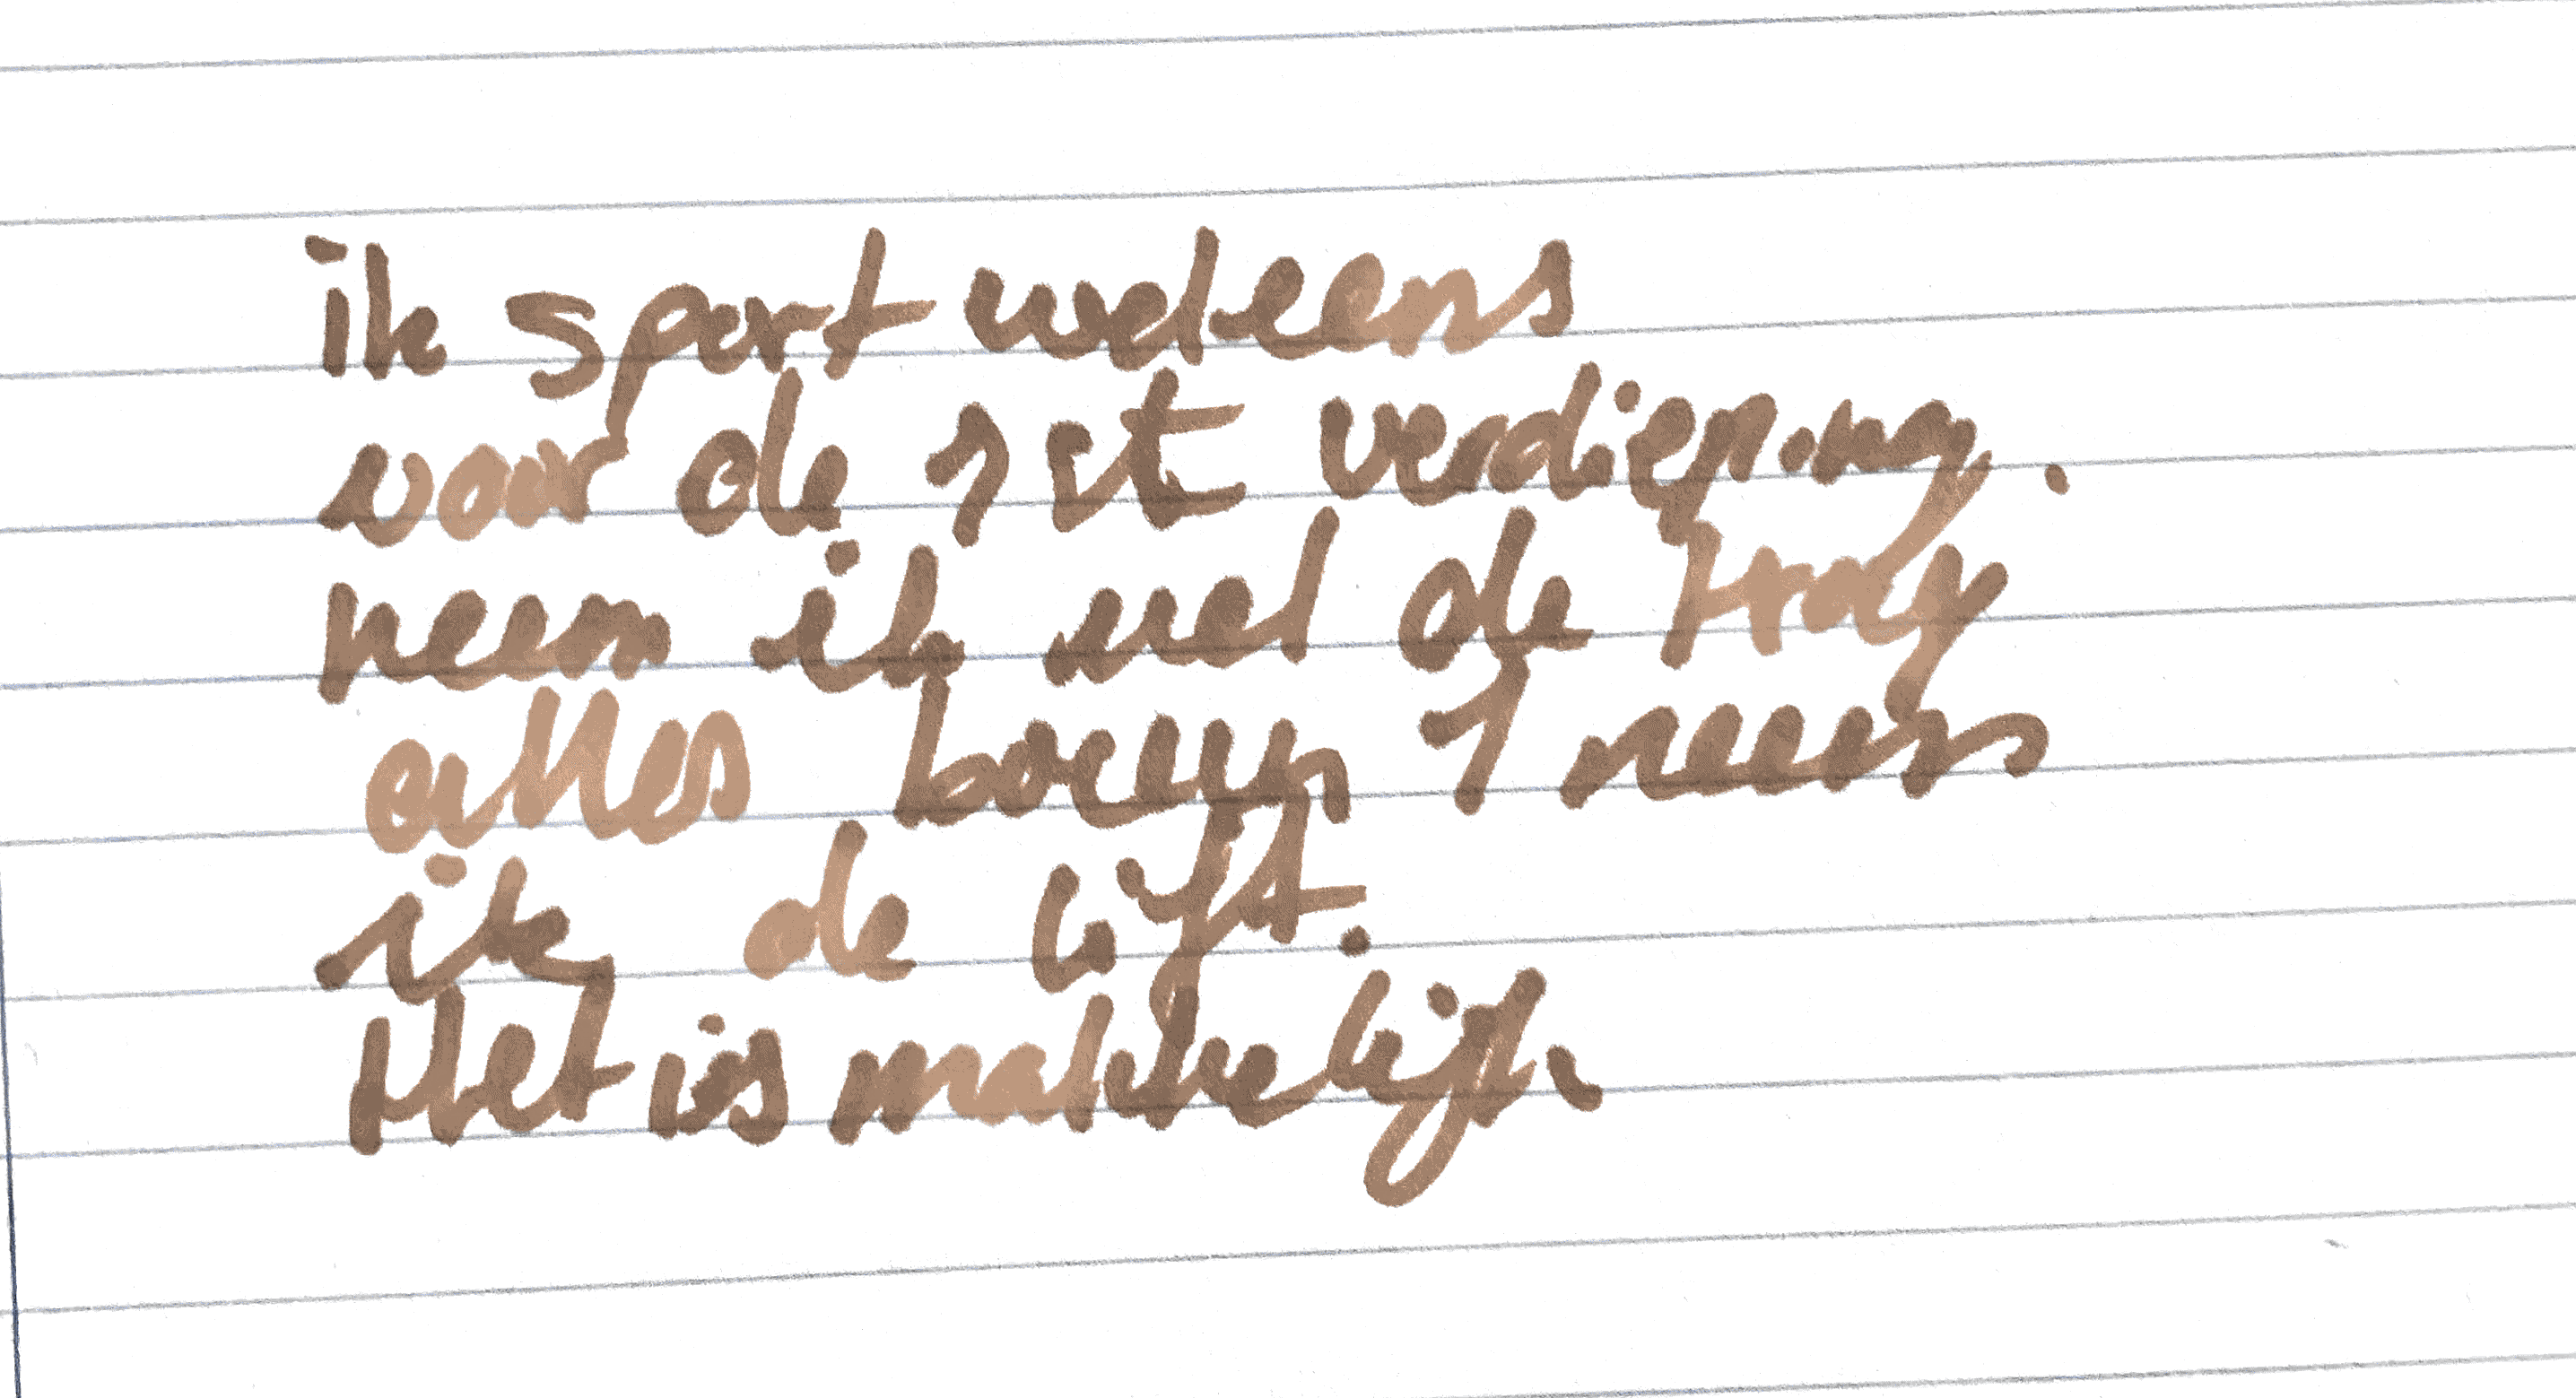 ik sport weleens
voor de 1st verdieping.
neem ik wel de trap
alles boven 1 neem
ik de lift.
Het is makkelijk.